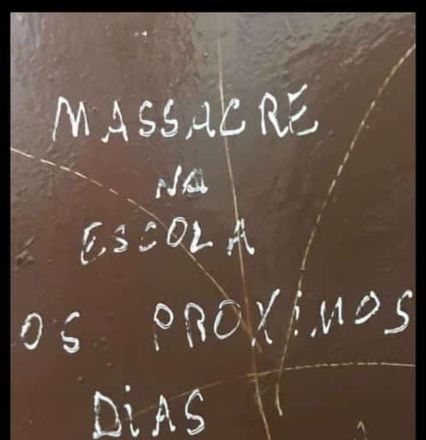 MASSACRE
NA
ESCOLA
OS PROXIMOS
DIAS